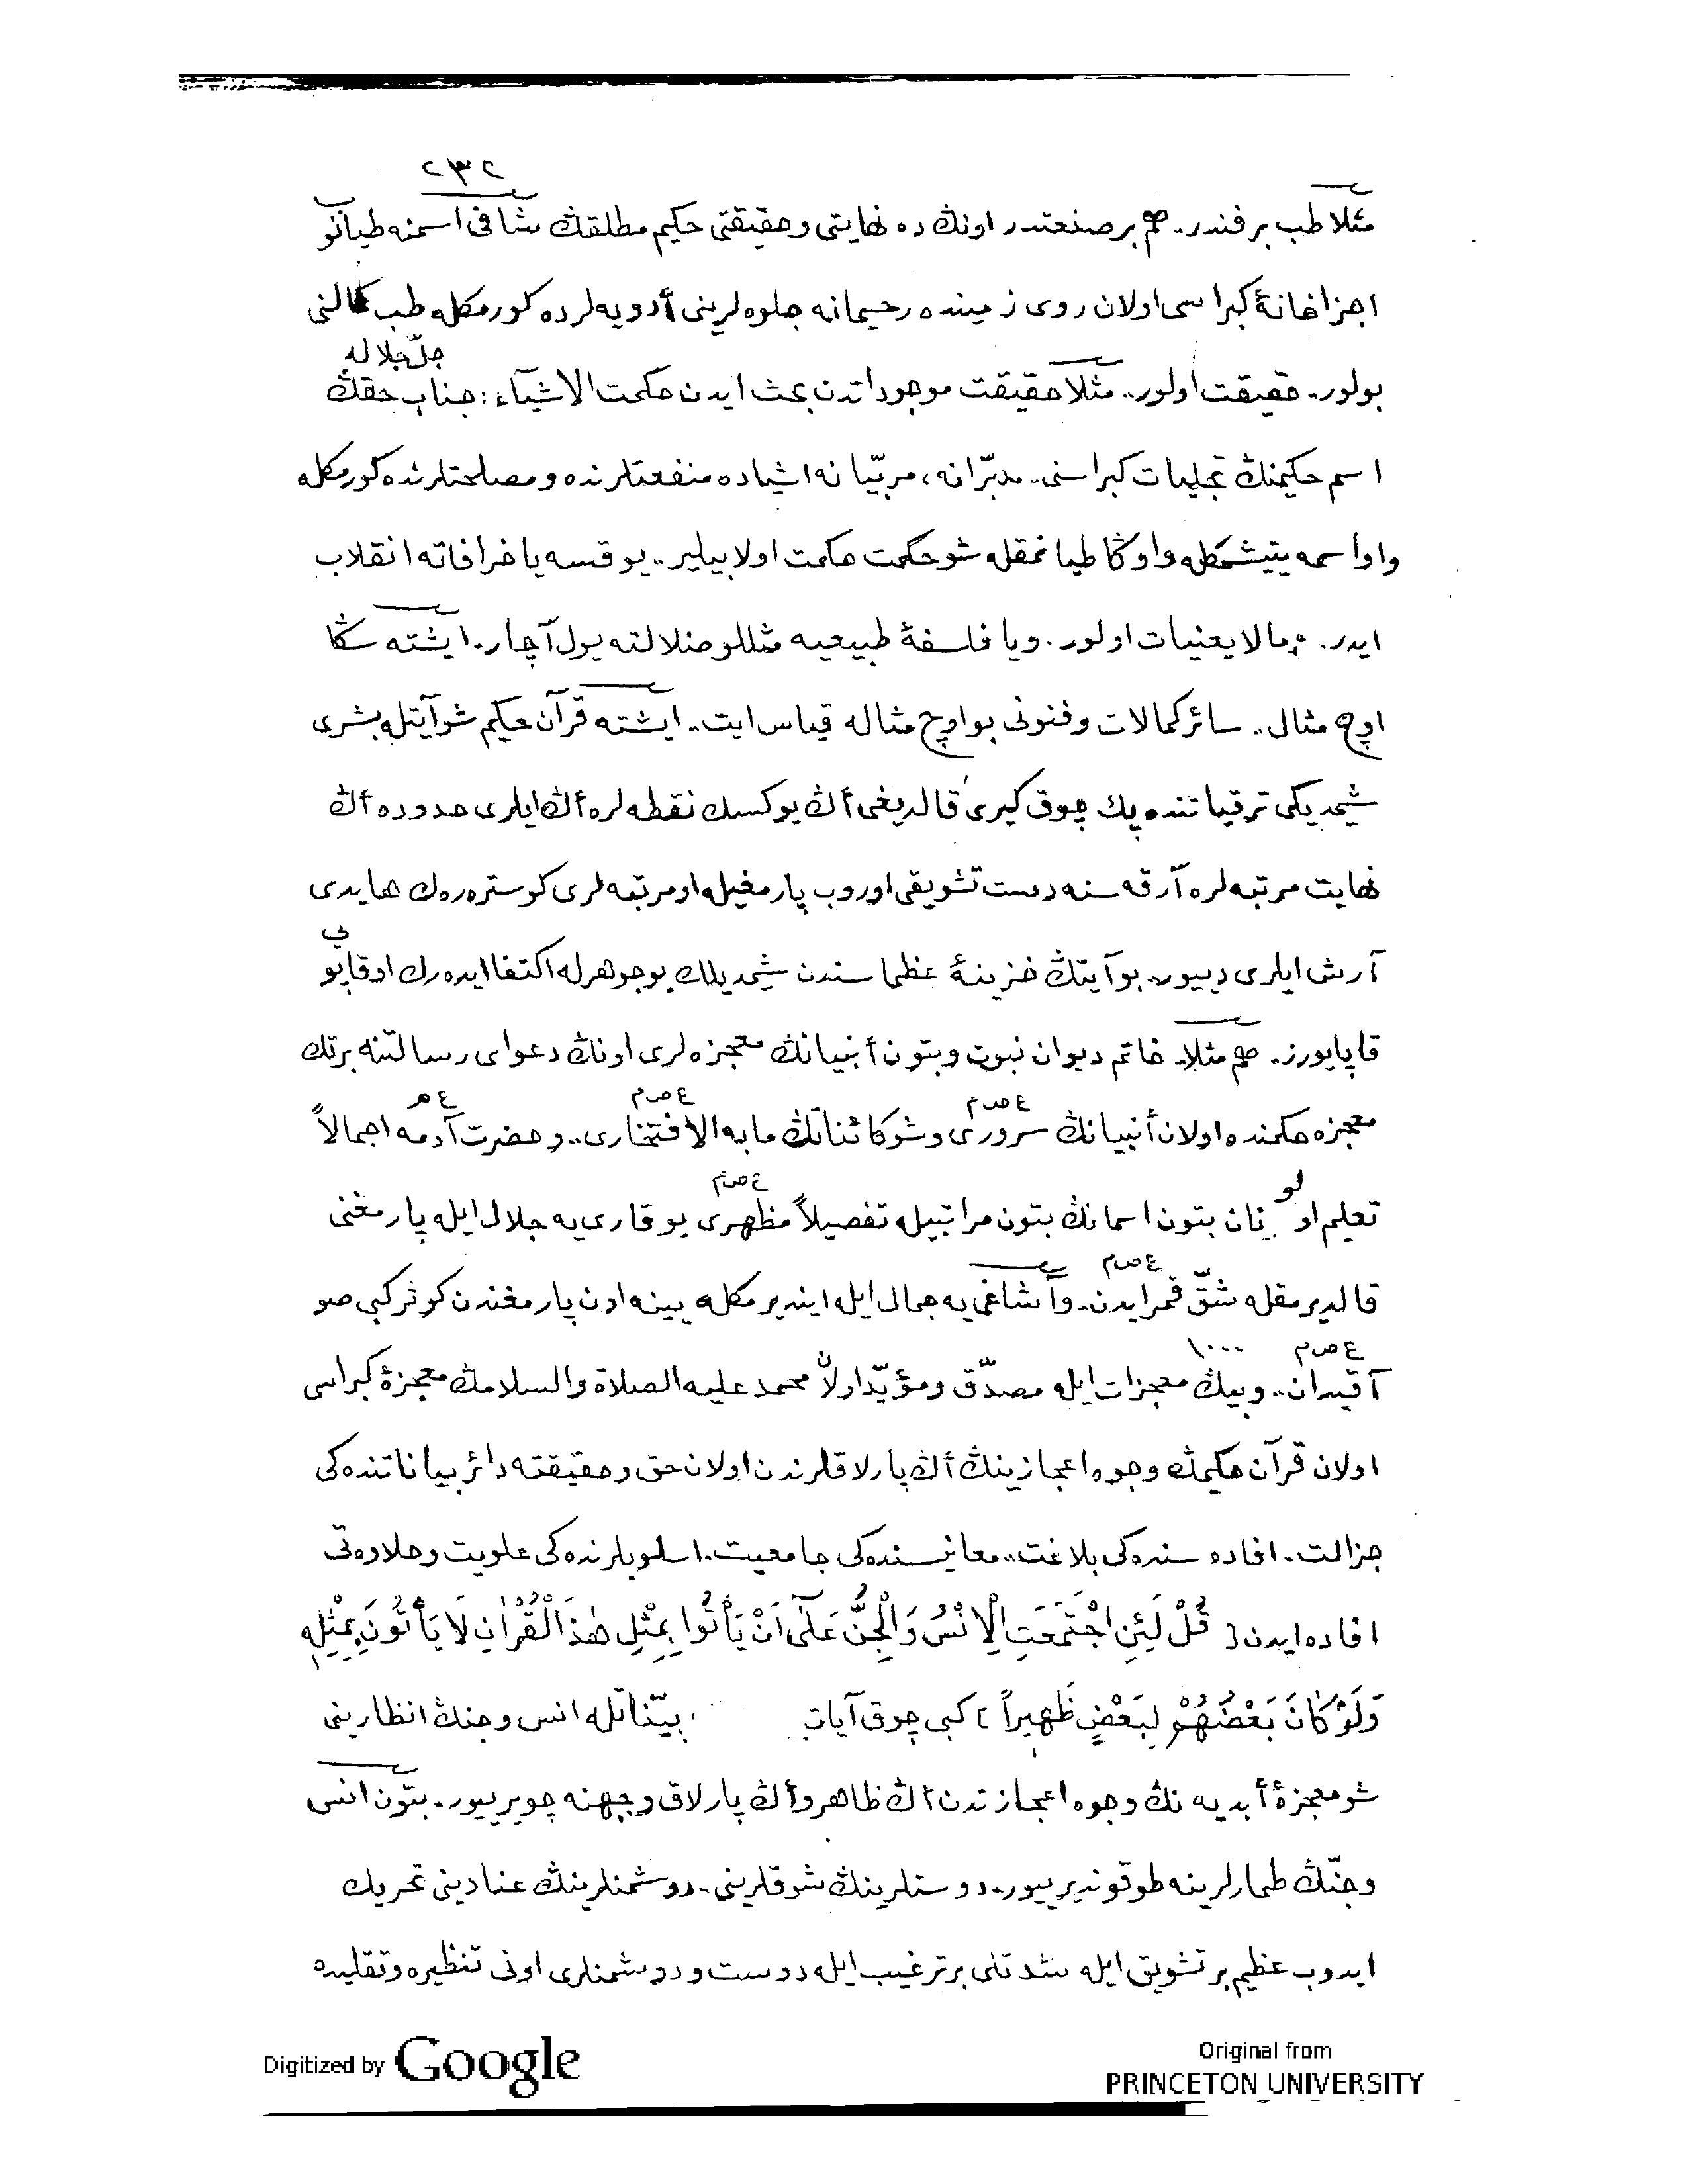 ٢٣٢
مثلا طب بر فندر.. هم بر صنعتدر اونڭ ده نهايتى و حقيقتى حكيم مطلقڭ شافى اسمنه طيانوب
اجزاخانۀ كبراسى اولان روى زمينده رحيمانه جلوه لرينى أدويه لرده كورمكله طب كمالنى
بولور. حقيقت اولور.. مثلا حقيقت موجوداتدن بحث ايدن حكمت الاشيآء: جناب حقڭ جلّ جلاله
اسم حكيمنڭ تجليات كبراسنى.. مدبّرانه، مربّيانه اشياده منفعتلرنده و مصلحتلرنده كورمكله
و او اسمه يتيشمكله و اوڭا طيانمقله شو حكمت حكمت اولابيلير.. يوقسه يا خرافاته انقلاب
ايدر. و مالايعنيات اولور. ويا فلسفۀ طبيعيه مثللو ضلالته يول آچار. ايشته سڭا
اوچ مثال.. سائر كمالات و فنونى بو اوچ مثاله قياس ايت.. ايشته قرآن حكيم شو آيتله بشرى
شيمديكى ترقياتنده پك چوق كيرى قالديغى أڭ يوكسك نقطه لره أڭ ايلرى حدوده أڭ
نهايت مرتبه لره آرقه سنه دست تشويقى اوروب پارمغيله او مرتبه لرى كوستره رك هايدى
آرش ايلرى دييور. بو آيتڭ خزينۀ عظماسندن شيمديلك بو جوهرله اكتفا ايده رك او قاپويى
قاپايورز. هم مثلا. خاتم ديوان نبوت و بتون أنبيانڭ معجزه لرى اونڭ دعواى رسالتنه برتك
معجزه حكمنده اولان أنبيانڭ سرورى ع ص م و شو كائناتڭ مابه الافتخارى ع ص م.. و حضرت آدمه ع م اجمالاً
تعليم اولونان بتون اسمانڭ بتون مراتبيله تفصيلاً مظهرى ع ص م يوقارى يه جلال ايله پارمغنى
قالديرمقله شقّ قمر ايدن ع ص م.. و آشاغى يه جمال ايله اينديرمكله يينه اون پارمغندن كوثر كبى صو
آقيدان ع ص م.. و بيڭ ١٠٠٠ معجزات ايله مصدّق و مؤيّد اولان محمد عليه الصلاة والسلامڭ معجزۀ كبراسى
اولان قرآن حكيمڭ وجوه اعجازينڭ أڭ پارلاقلرندن اولان حق و حقيقته دائر بياناتنده كى
جزالت. افاده سنده كى بلاغت.. معانيسنده كى جامعيت. اسلوبلرنده كى علويت و حلاوتى
افاده ايدن [ قُلْ لَئِنِ اجْتَمَعَتِ الْاِنْسُ وَالْجِنُّ عَلٰٓى اَنْ يَاْتُوا بِمِثْلِ هٰذَا الْقُرْاٰنِ لَا يَاْتُونَ بِمِثْلِهٖ
وَلَوْ كَانَ بَعْضُهُمْ لِبَعْضٍ ظَهِيراً ] كبى چوق آيات بيّناتله انس و جنڭ انظارينى
شو معجزۀ أبديه نڭ وجوه اعجازندن أڭ ظاهر و أڭ پارلاق وجهنه چويرييور.. بتون انس
و جنّڭ طمارلرينه طوقونديرييور. دوستلرينڭ شوقلرينى.. دوشمنلرينڭ عنادينى تحريك
ايدوب عظيم بر تشويق ايله شدتلى بر ترغيب ايله دوست و دوشمنلرى اونى تنظيره و تقليده
Digitized by Google
Original from
PRINCETON UNIVERSITY